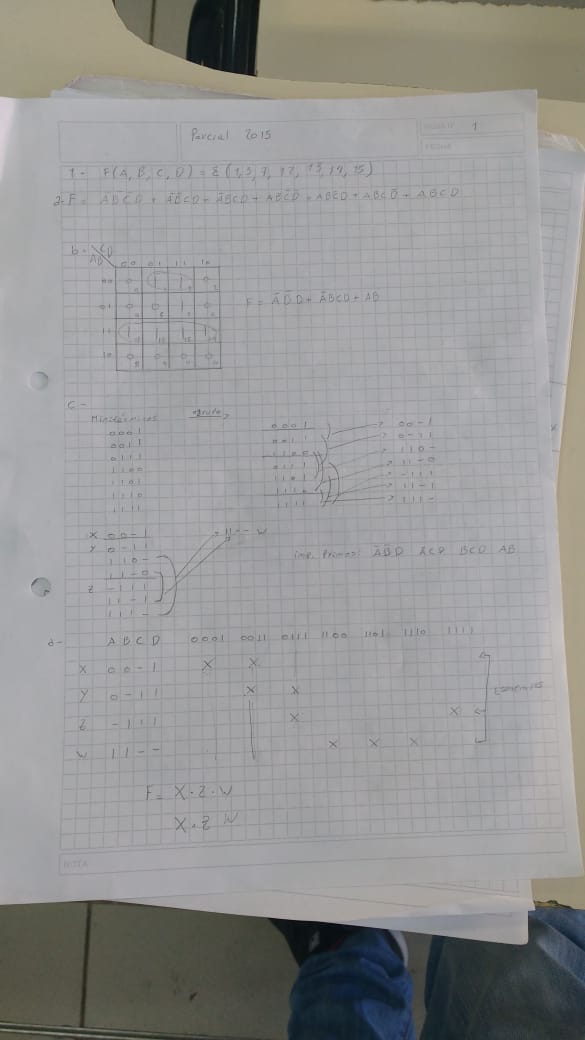 Parcial 2015
HOJA Nº 1
FECHA
1- F(A, B, C, D) = Σ (1,3,7, 12, 13, 14, 15)
b- CD
AB 00 01 11 10
00 0 1 1 0
01 0 0 1 0
11 1 1 1 1
10 0 0 0 0
F = A̅B̅D + A̅BCD + AB
c-
Mintérminos grupo
0001
0011
0111
1100
1101
1110
1111
0001
0011
1100
0111
1101
1110
1111
00-1
0-11
110-
11-0
-111
11-1
111-
X 00-1
Y 0-11
110-
11-0
Z -111
11-1
111-
11-- W
imp. Primos: A̅B̅D A̅CD BCD AB
d- A B C D 0001 0011 0111 1100 1101 1110 1111
X 0 0 - 1 X X
Y 0 - 1 1 X X
Z - 1 1 1 X X
W 1 1 - - X X X
Esenciales
F = X · Z · W
X · Z W
NOTA